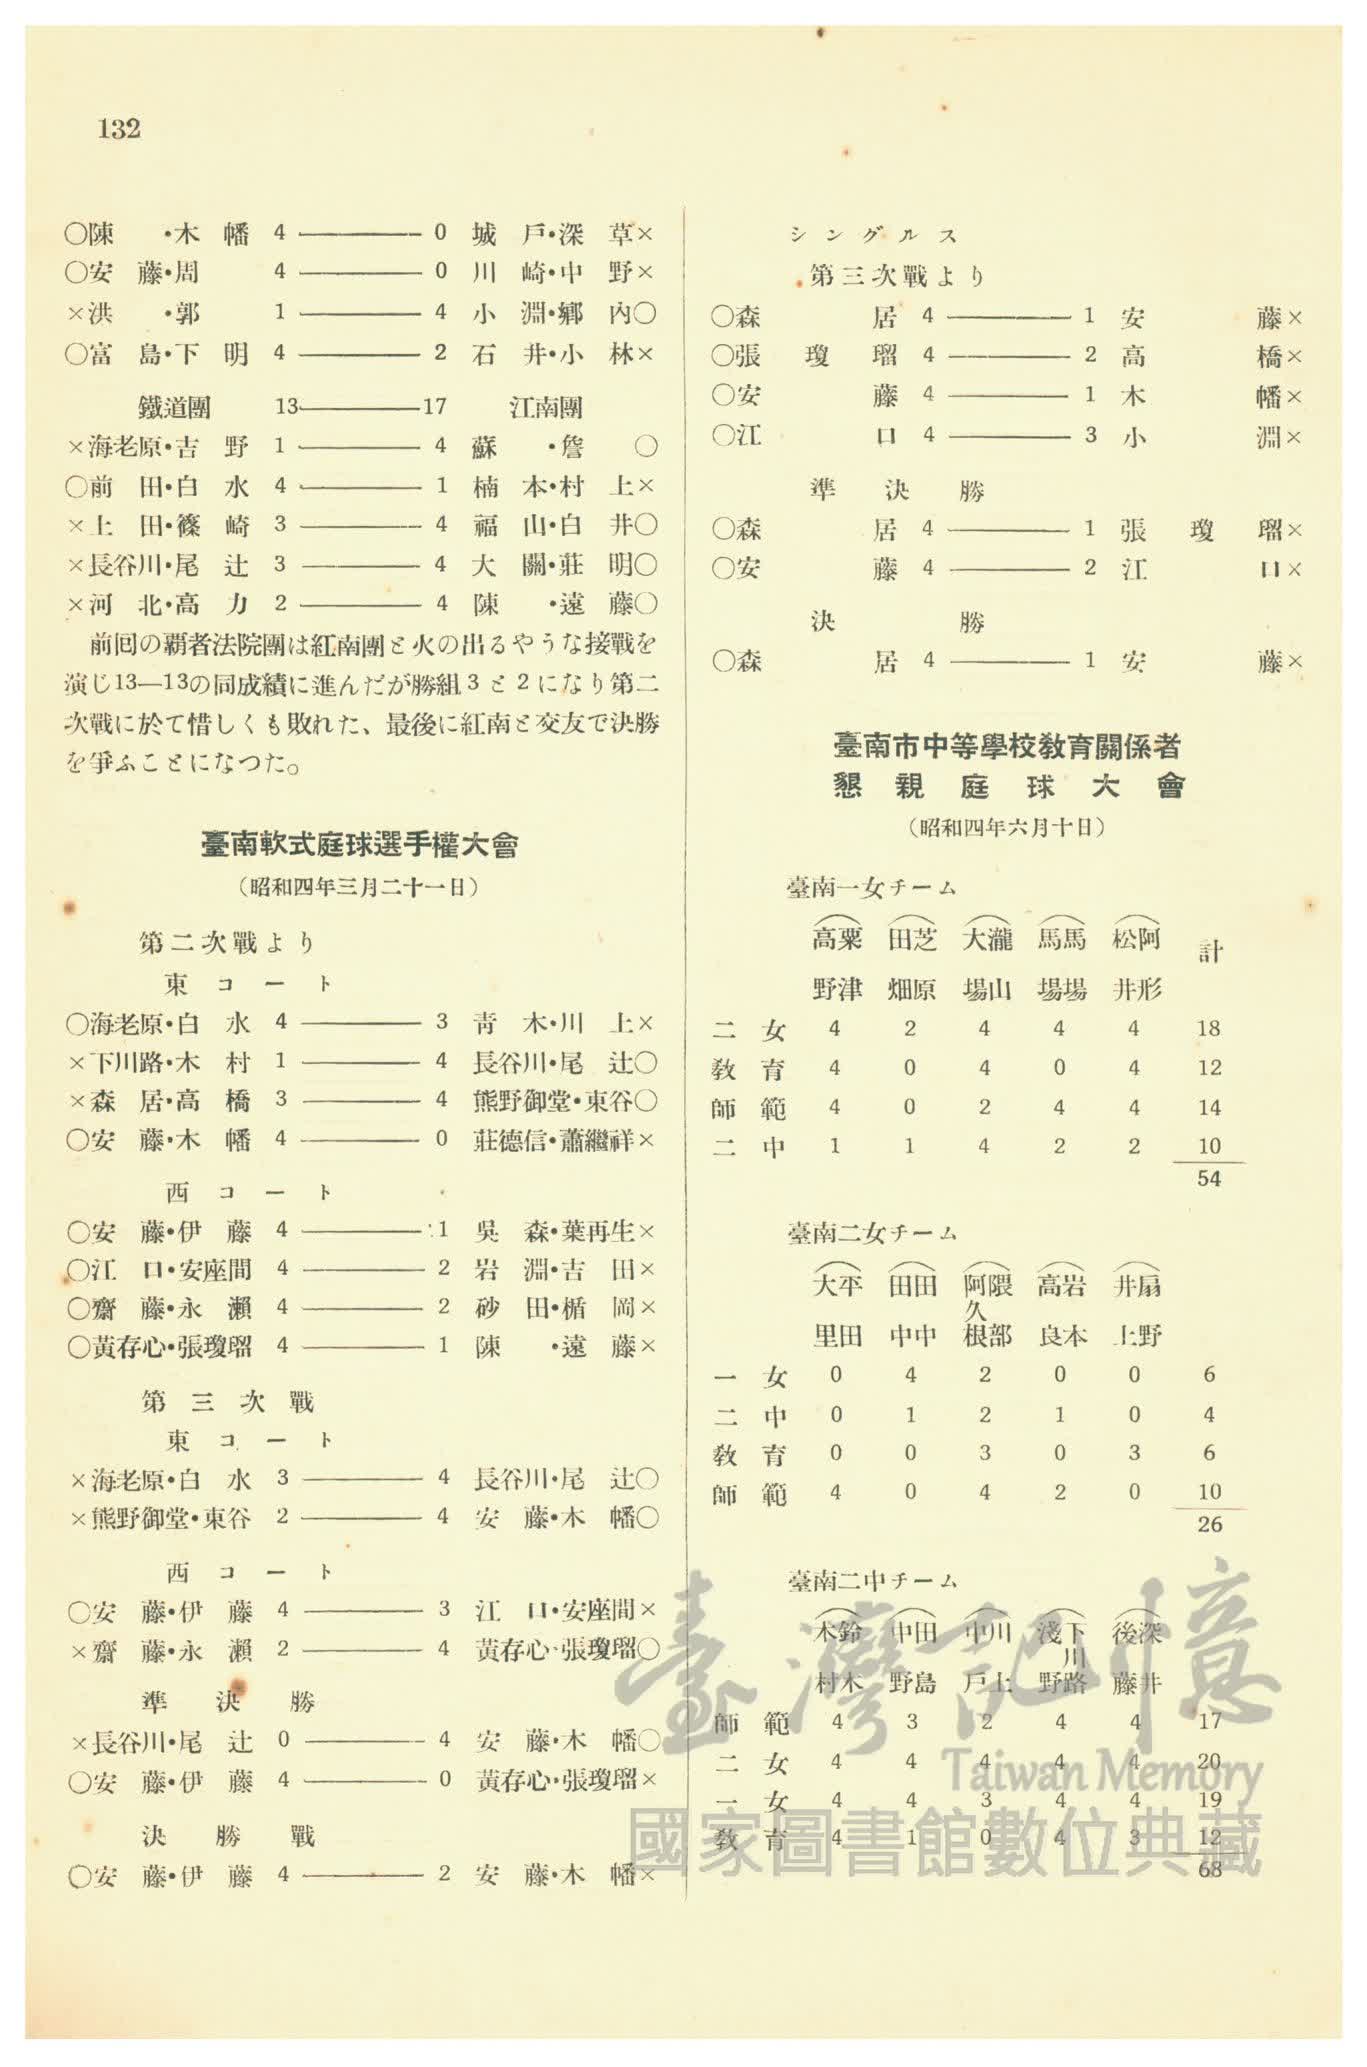 132
○陳・木幡 4 — 0 城戶・深草×
○安藤・周 4 — 0 川崎・中野×
×洪・郭 1 — 4 小淵・鄉內○
○富島・下明 4 — 2 石井・小林×
鐵道團 13 — 17 江南團
×海老原・吉野 1 — 4 蘇・詹○
○前田・白水 4 — 1 楠本・村上×
×上田・篠崎 3 — 4 福山・白井○
×長谷川・尾辻 3 — 4 大關・莊明○
×河北・高力 2 — 4 陳・遠藤○
前回の覇者法院團は紅南團と火の出るやうな接戰を
演じ13—13の同成績に進んだが勝組3と2になり第二
次戰に於て惜しくも敗れた、最後に紅南と交友で決勝
を爭ふことになつた。
臺南軟式庭球選手權大會
（昭和四年三月二十一日）
第二次戰より
東コート
○海老原・白水 4 — 3 靑木・川上×
×下川路・木村 1 — 4 長谷川・尾辻○
×森居・高橋 3 — 4 熊野御堂・東谷○
○安藤・木幡 4 — 0 莊德信・蕭繼祥×
西コート
○安藤・伊藤 4 — 1 吳森・葉再生×
○江口・安座間 4 — 2 岩淵・吉田×
○齋藤・永瀨 4 — 2 砂田・楯岡×
○黃存心・張瓊瑠 4 — 1 陳・遠藤×
第三次戰
東コート
×海老原・白水 3 — 4 長谷川・尾辻○
×熊野御堂・東谷 2 — 4 安藤・木幡○
西コート
○安藤・伊藤 4 — 3 江口・安座間×
×齋藤・永瀨 2 — 4 黃存心・張瓊瑠○
準決勝
×長谷川・尾辻 0 — 4 安藤・木幡○
○安藤・伊藤 4 — 0 黃存心・張瓊瑠×
決勝戰
○安藤・伊藤 4 — 2 安藤・木幡×
シングルス
第三次戰より
○森居 4 — 1 安藤×
○張瓊瑠 4 — 2 高橋×
○安藤 4 — 1 木幡×
○江口 4 — 3 小淵×
準決勝
○森居 4 — 1 張瓊瑠×
○安藤 4 — 2 江口×
決勝
○森居 4 — 1 安藤×
臺南市中等學校敎育關係者
懇親庭球大會
（昭和四年六月十日）
臺南一女チーム
高粟 田芝 大瀧 馬馬 松阿 計
野津 畑原 場山 場場 井形
二女 4 2 4 4 4 18
敎育 4 0 4 0 4 12
師範 4 0 2 4 4 14
二中 1 1 4 2 2 10
54
臺南二女チーム
大平 田田 阿隈 高岩 井扇
久
里田 中中 根部 良本 上野
一女 0 4 2 0 0 6
二中 0 1 2 1 0 4
敎育 0 0 3 0 3 6
師範 4 0 4 2 0 10
26
臺南二中チーム
木鈴 中田 中川 淺下 後深
川
村木 野島 戶上 野路 藤井
師範 4 3 2 4 4 17
二女 4 4 4 4 4 20
一女 4 4 3 4 4 19
敎育 4 1 0 4 3 12
68
臺灣記憶
Taiwan Memory
國家圖書館數位典藏